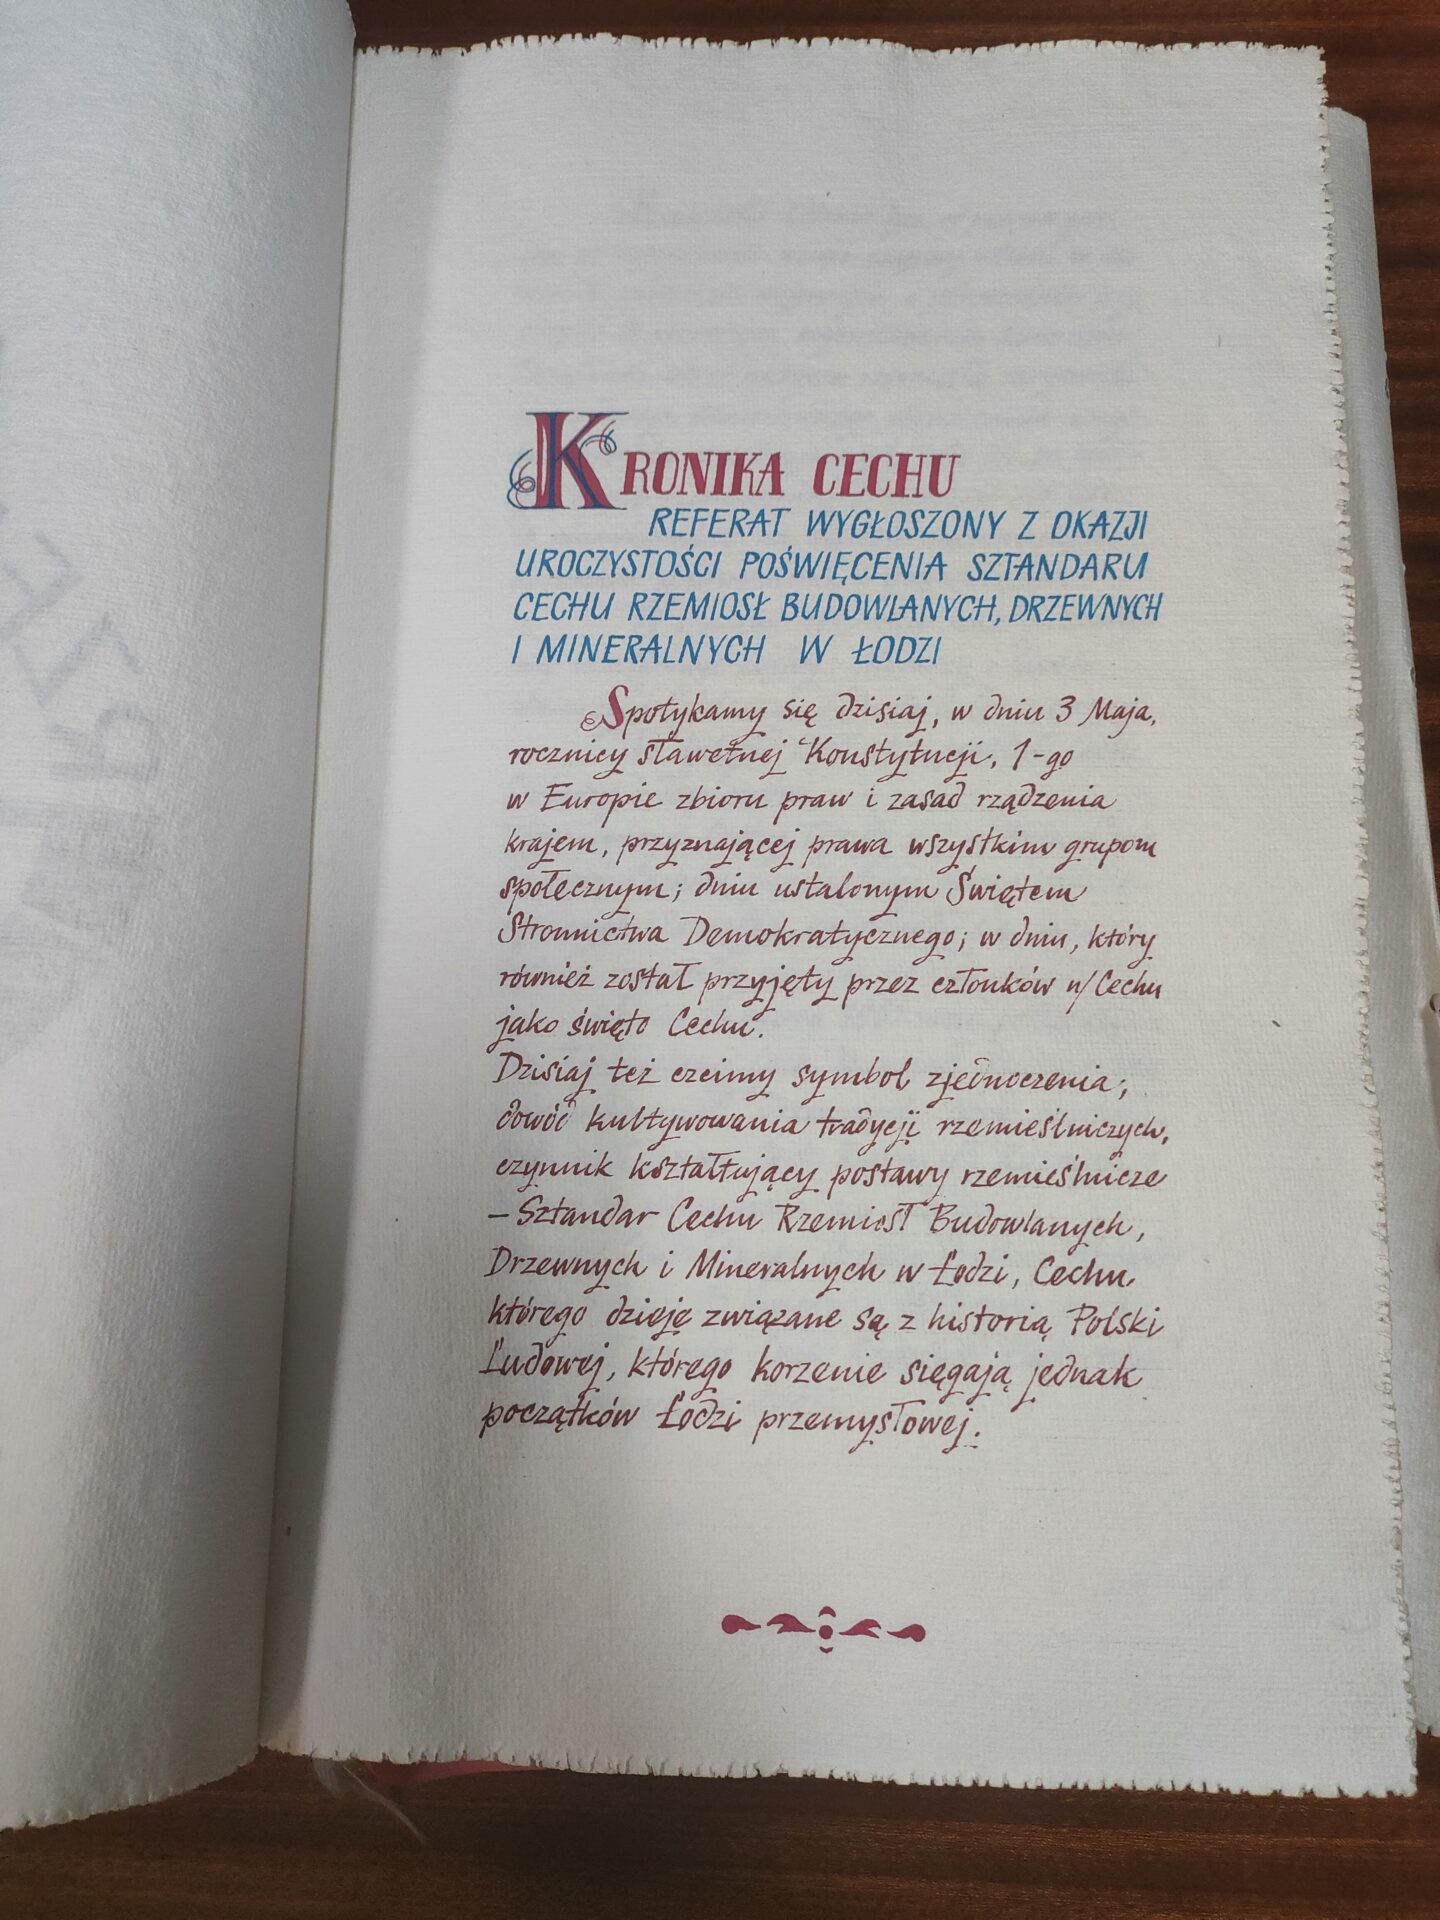 KRONIKA CECHU
REFERAT WYGŁOSZONY Z OKAZJI
UROCZYSTOŚCI POŚWIĘCENIA SZTANDARU
CECHU RZEMIOSŁ BUDOWLANYCH, DRZEWNYCH
I MINERALNYCH W ŁODZI
Spotykamy się dzisiaj, w dniu 3 Maja,
rocznicy sławetnej Konstytucji, 1-go
w Europie zbioru praw i zasad rządzenia
krajem, przyznającej prawa wszystkim grupom
społecznym; dniu ustalonym Świętem
Stronnictwa Demokratycznego; w dniu, który
również został przyjęty przez członków n/Cechu
jako święto Cechu.
Dzisiaj też czcimy symbol zjednoczenia,
dowód kultywowania tradycji rzemieślniczych,
czynnik kształtujący postawy rzemieślnicze
– Sztandar Cechu Rzemiosł Budowlanych,
Drzewnych i Mineralnych w Łodzi, Cechu
którego dzieje związane są z historią Polski
Ludowej, którego korzenie sięgają jednak
początków Łodzi przemysłowej.